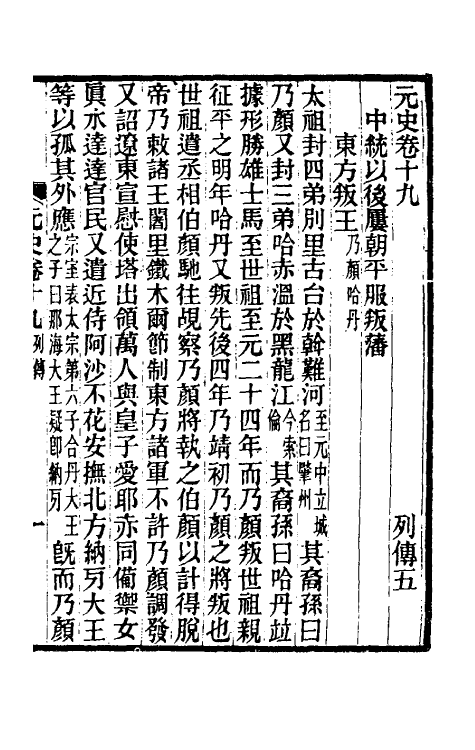 元史卷十九
列傳五
中統以後屢朝平服叛藩
東方叛王乃顏哈丹
太祖封四弟別里古台於斡難河至元中立城名曰肇州其裔孫曰
乃顏又封三弟哈赤溫於黑龍江今索倫其裔孫曰哈丹竝
據形勝雄士馬至世祖至元二十四年而乃顏叛世祖親
征平之明年哈丹又叛先後四年乃靖初乃顏之將叛也
世祖遣丞相伯顏馳往覘察乃顏將執之伯顏以計得脫
帝乃敕諸王闍里鐵木爾節制東方諸軍不許乃顏調發
又詔遼東宣慰使塔出領萬人與皇子愛耶赤同備禦女
真水達達官民又遣近侍阿沙不花安撫北方納牙大王
等以孤其外應宗室表太宗第六子合丹大王之子曰那海大王疑卽納牙旣而乃顏
元史卷十九列傳
一